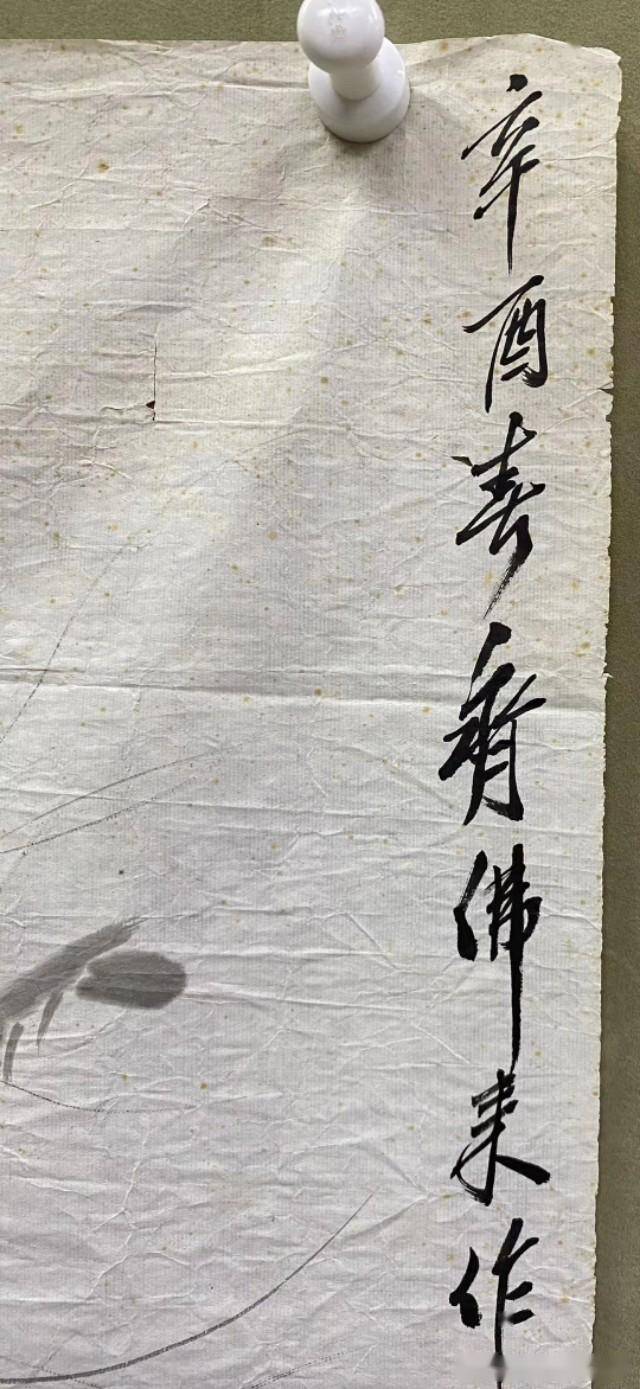 辛酉春佛来作